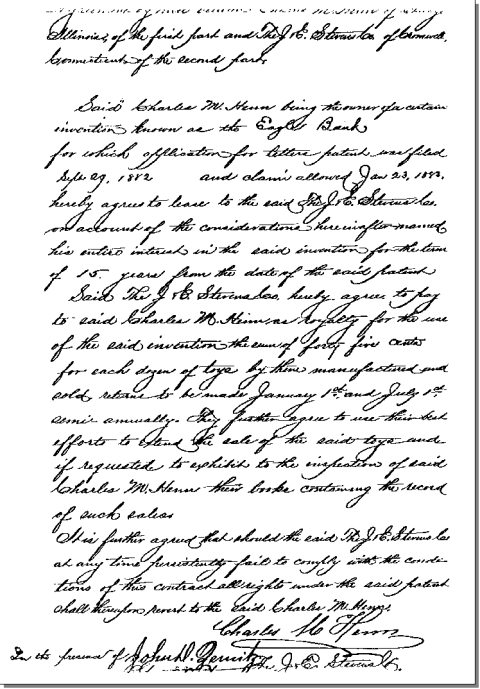 Illinois, of the first part and The J & E. Stevens Co. of Cromwell,
Connecticut of the second part,
Said Charles M. Henn being the owner of a certain
invention known as the Eagle Bank
for which application for letters patent was filed
Sept 29, 1882 and claim allowed Jan 23, 1883,
hereby agrees to lease to the said The J & E. Stevens Co.
on account of the considerations hereinafter named
his entire interest in the said invention for the term
of 15 years from the date of the said patent
Said The J & E. Stevens Co. hereby agree to pay
to said Charles M. Henn as royalty for the use
of the said invention the sum of forty five cents
for each dozen of toys by them manufactured and
sold returns to be made January 1st and July 1st
semi annually. They further agree to use their best
efforts to extend the sale of the said toys and
if requested to exhibit to the inspection of said
Charles M. Henn their books containing the record
of such sales
It is further agreed that should the said The J. & E. Stevens Co
at any time persistently fail to comply with the condi-
tions of this contract all rights under the said patent
shall thereupon revert to the said Charles M. Henn,
Charles M Henn
In the presence of John D.
The J. & E. Stevens Co.